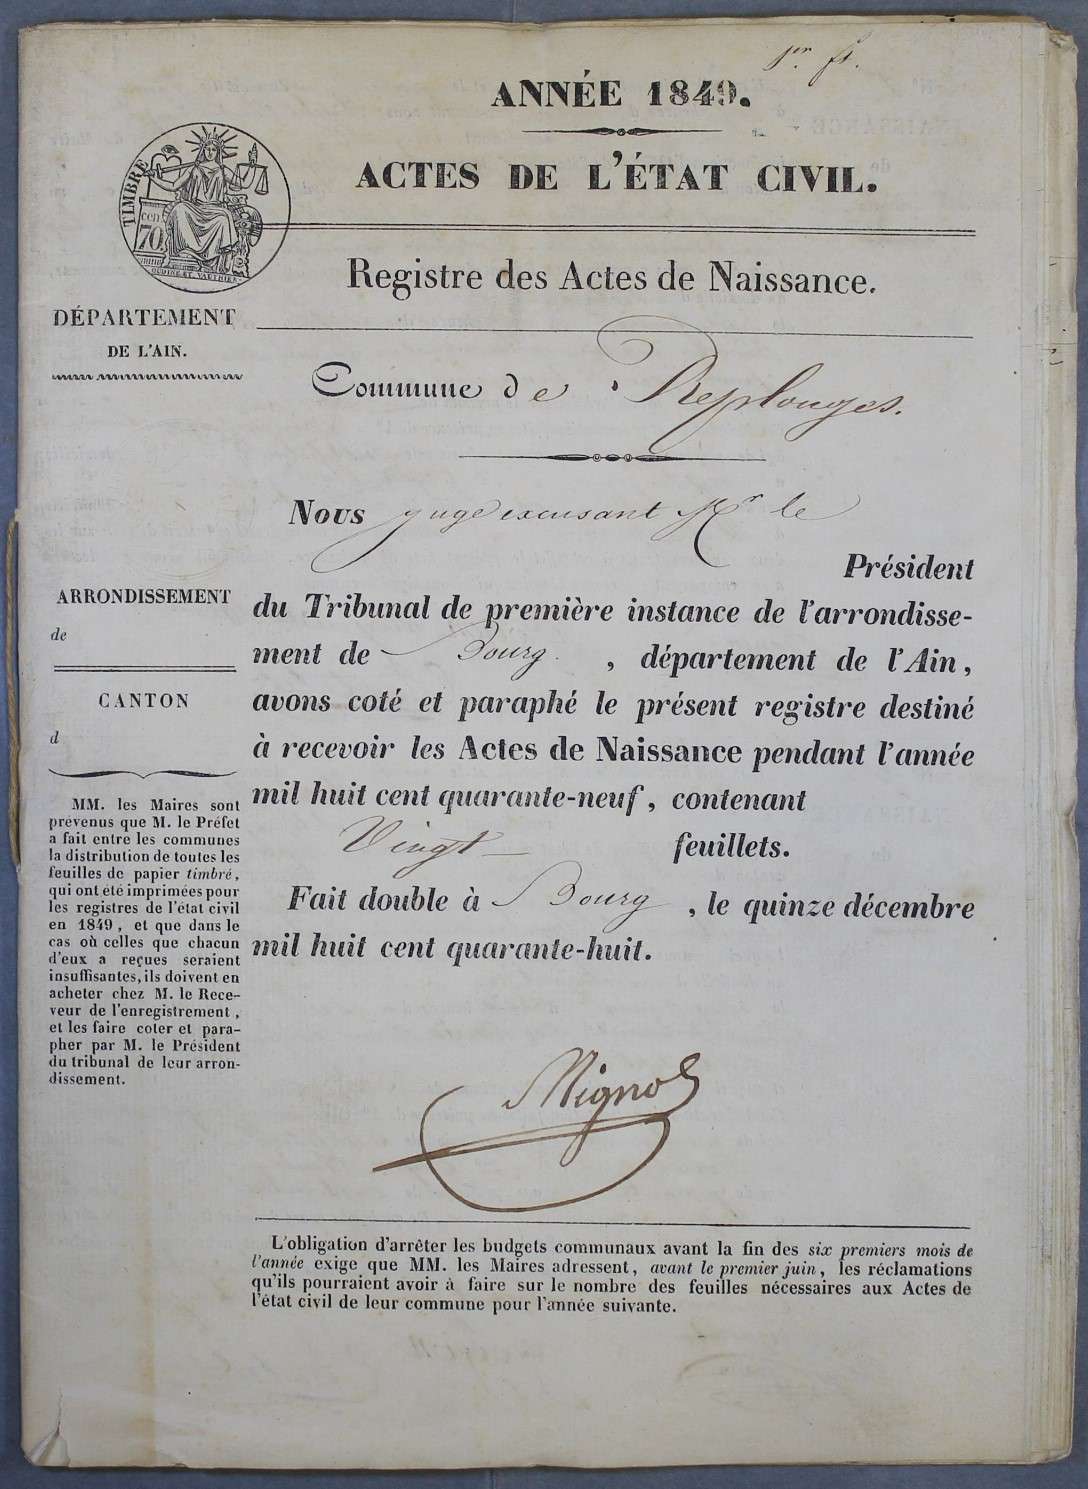 1er ft.
ANNÉE 1849.
ACTES DE L'ÉTAT CIVIL.
TIMBRE
cen
70.
OUDINÉ ET VAUTHIER
Registre des Actes de Naissance.
DÉPARTEMENT
DE L'AIN.
Commune de Replonges.
Nous juge excusant Mr le
Président
du Tribunal de première instance de l'arrondisse-
ment de Bourg , département de l'Ain,
avons coté et paraphé le présent registre destiné
à recevoir les Actes de Naissance pendant l'année
mil huit cent quarante-neuf, contenant
Vingt feuillets.
Fait double à Bourg , le quinze décembre
mil huit cent quarante-huit.
ARRONDISSEMENT
de
CANTON
d
MM. les Maires sont
prévenus que M. le Préfet
a fait entre les communes
la distribution de toutes les
feuilles de papier timbré,
qui ont été imprimées pour
les registres de l'état civil
en 1849, et que dans le
cas où celles que chacun
d'eux a reçues seraient
insuffisantes, ils doivent en
acheter chez M. le Rece-
veur de l'enregistrement,
et les faire coter et para-
pher par M. le Président
du tribunal de leur arron-
dissement.
Mignot
L'obligation d'arrêter les budgets communaux avant la fin des six premiers mois de
l'année exige que MM. les Maires adressent, avant le premier juin, les réclamations
qu'ils pourraient avoir à faire sur le nombre des feuilles nécessaires aux Actes de
l'état civil de leur commune pour l'année suivante.